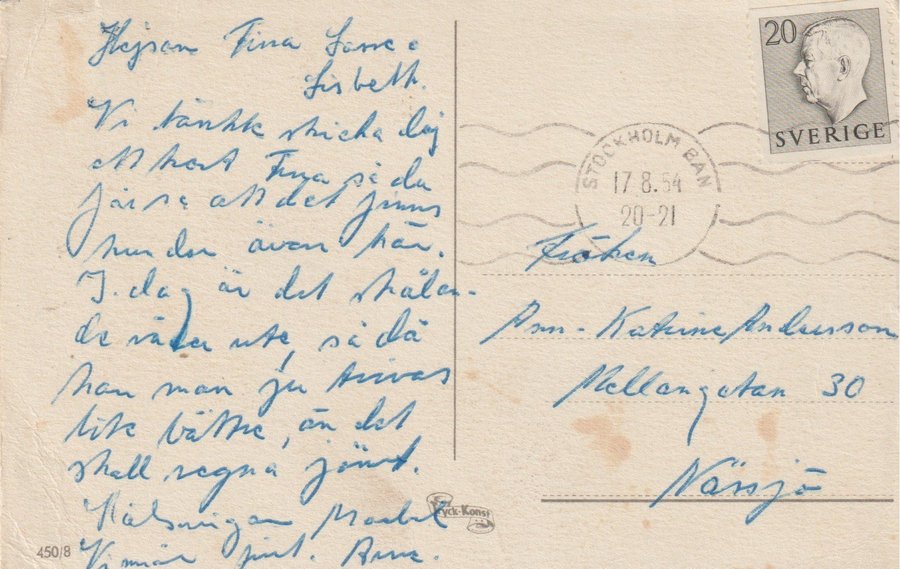 Hejsan Tina Lasse o
Lisbeth.
Vi tänkte skicka dej
ett kort Tina så du
får se att det finns
hundar även här.
I dag är det strålan-
de väder ute, så då
kan man ju trivas
lite bättre, än det
skall regna jämt.
Hälsningar
Vi mår fint.
450/8
Tryck-Konst
20
SVERIGE
STOCKHOLM BAN
17.8.54
20-21
Fröken
Ann-Katrine Andersson
Mellangatan 30
Nässjö